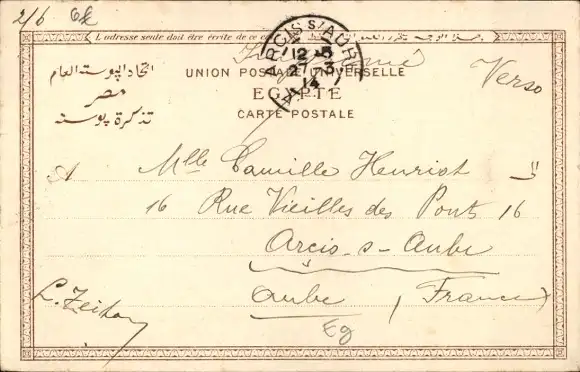 2/6
L'adresse seule doit être écrite de ce
ARCIS S/AUBE
12-5
27-3
14
Verso
اتحاد البوستة العام
مصر
تذكرة بوستة
UNION POSTALE UNIVERSELLE
EGYPTE
CARTE POSTALE
A Mlle Camille Henriot الى
16 Rue Vieilles des Ponts 16
Arcis-s-Aube
Aube (France)
Eg